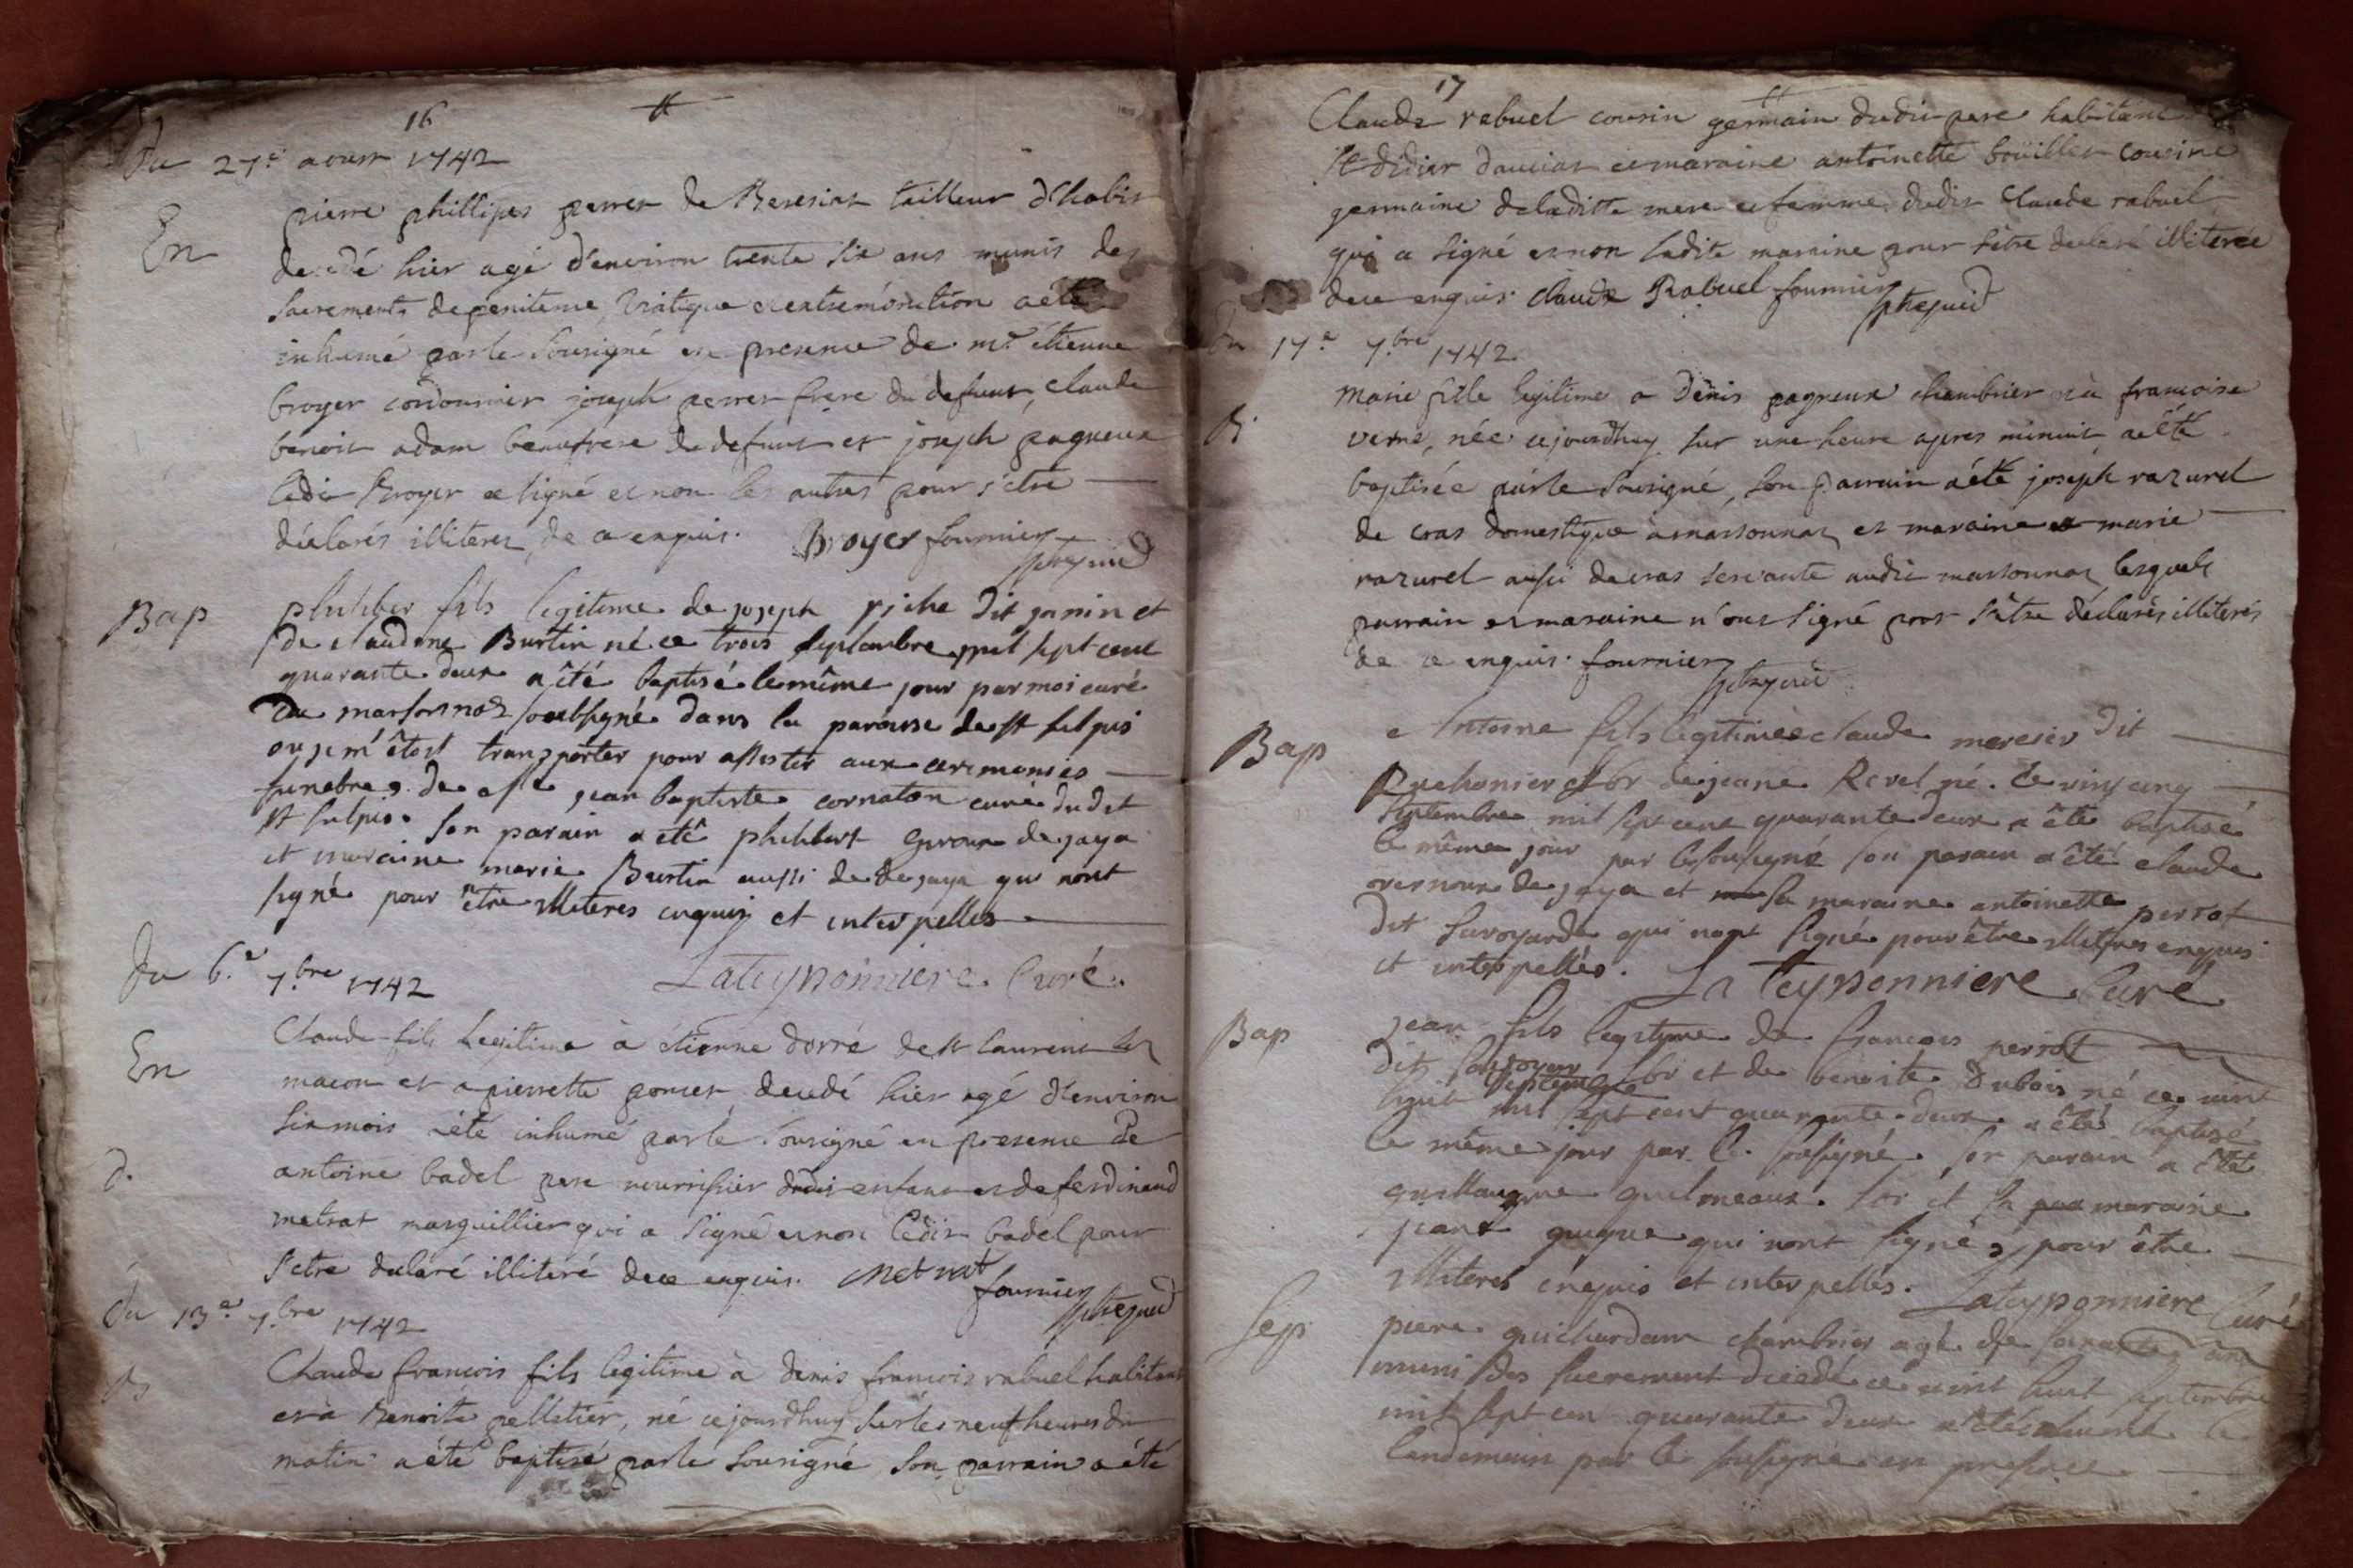 16
Du 27.e aoust 1742
En
pierre phillipes perret de Beresiat tailleur d'habit
decedé hier agé d'environ trente six ans munis des
sacrements de penitence, viatique et extremonction a été
inhumé par le sousigné en presence de m.e étienne
broyer cordonnier joseph perret frere du defunt, claude
benoit adam beaufrere du defunt et joseph pagneux
ledit Broyer a signé et non les autres pour s'être
déclarés illiteres, de ce enquis. Broyer fournier
Bap
philiber fils legitime de joseph piche dit janin et
de claudine Burtin né ce trois septembre mil sept cent
quarante deux a été baptisé le même jour par moi curé
de marsonnas soubsigné dans la paroisse de st sulpis
ou je m'étoit transporter pour assister aux ceremonies
funebres de jean baptiste cornaton curé dudit
st sulpis. son parain a été philibert de jaya
et maraine marie Burtin aussi de jaya qui nont
signé pour être illiteres enquis et interpelles
Lateyponniere. Curé.
Du 6.e 7.bre 1742
En
Claude fils legitime à étienne dorré de st laurent les
macon et a pierrette poncet, decedé hier agé d'environ
six mois a été inhumé par le sousigné en presence de
d.
antoine badel pere nourrissier dudit enfant et de ferdinand
metrat marguillier qui a signé et non ledit badel pour
s'etre declaré illiteré de ce enquis. Metrat
fournier
du 13.e 7.bre 1742
B
Claude francois fils legitime à denis francois rabuel habitant
et à Benoite pelletier, né cejourdhuy sur les neuf heures du
matin a été baptisé par le sousigné, son parrain a été
17
Claude rabuel cousin germain dudit pere habitant
st didier d'aussiat et maraine antoinette bouillet cousine
germaine de laditte mere et femme dudit Claude rabuel
qui a signé et non ladite maraine pour s'être declaré illiterée
de ce enquis. Claude Rabuel fournier
Du 17.e 7.bre 1742
B.
Marie fille legitime a Dénis pagneux chambrier et à francoise
verne, née cejourdhuy sur une heure apres minuit a été
baptisée par le sousigné, son parrain a été joseph razurel
de cras domestique à marsonnaz et maraine marie
razurel aussi de cras servante audit marsonnaz lesquels
parrain et maraine n'ont signé pour s'être déclarés illiterés
de ce enquis. fournier
Bap
Antoine fils legitime claude mercier dit
et de jeane Revel né. le vint cinq
septembre mil sept cent quarante deux a été baptisé
le même jour par le sousigné son parain a été claude
de jaya et sa maraine antoinette perrot
dit savoyarde qui nont signé pour être illiteres enquis
et interpellés. La teyponniere Curé
Bap
jean fils legitime de francois perrot
dit savoyar et de benoite dubois né ce vint
huit septembre mil sept cent quarante deux a été baptisé
le même jour par le sousigné. son parain a été
guillaume guilmeaux. et sa maraine
jeane qui nont signé, pour être
illiteres enquis et interpellés. Lateyponniere Curé
Sep
piere guichardan chambrier agé de soixante ans
muni des sacrement decédé ce vint huit septembre
mil sept cent quarante deux a été inhumé le
lendemain par le sousigné en presence